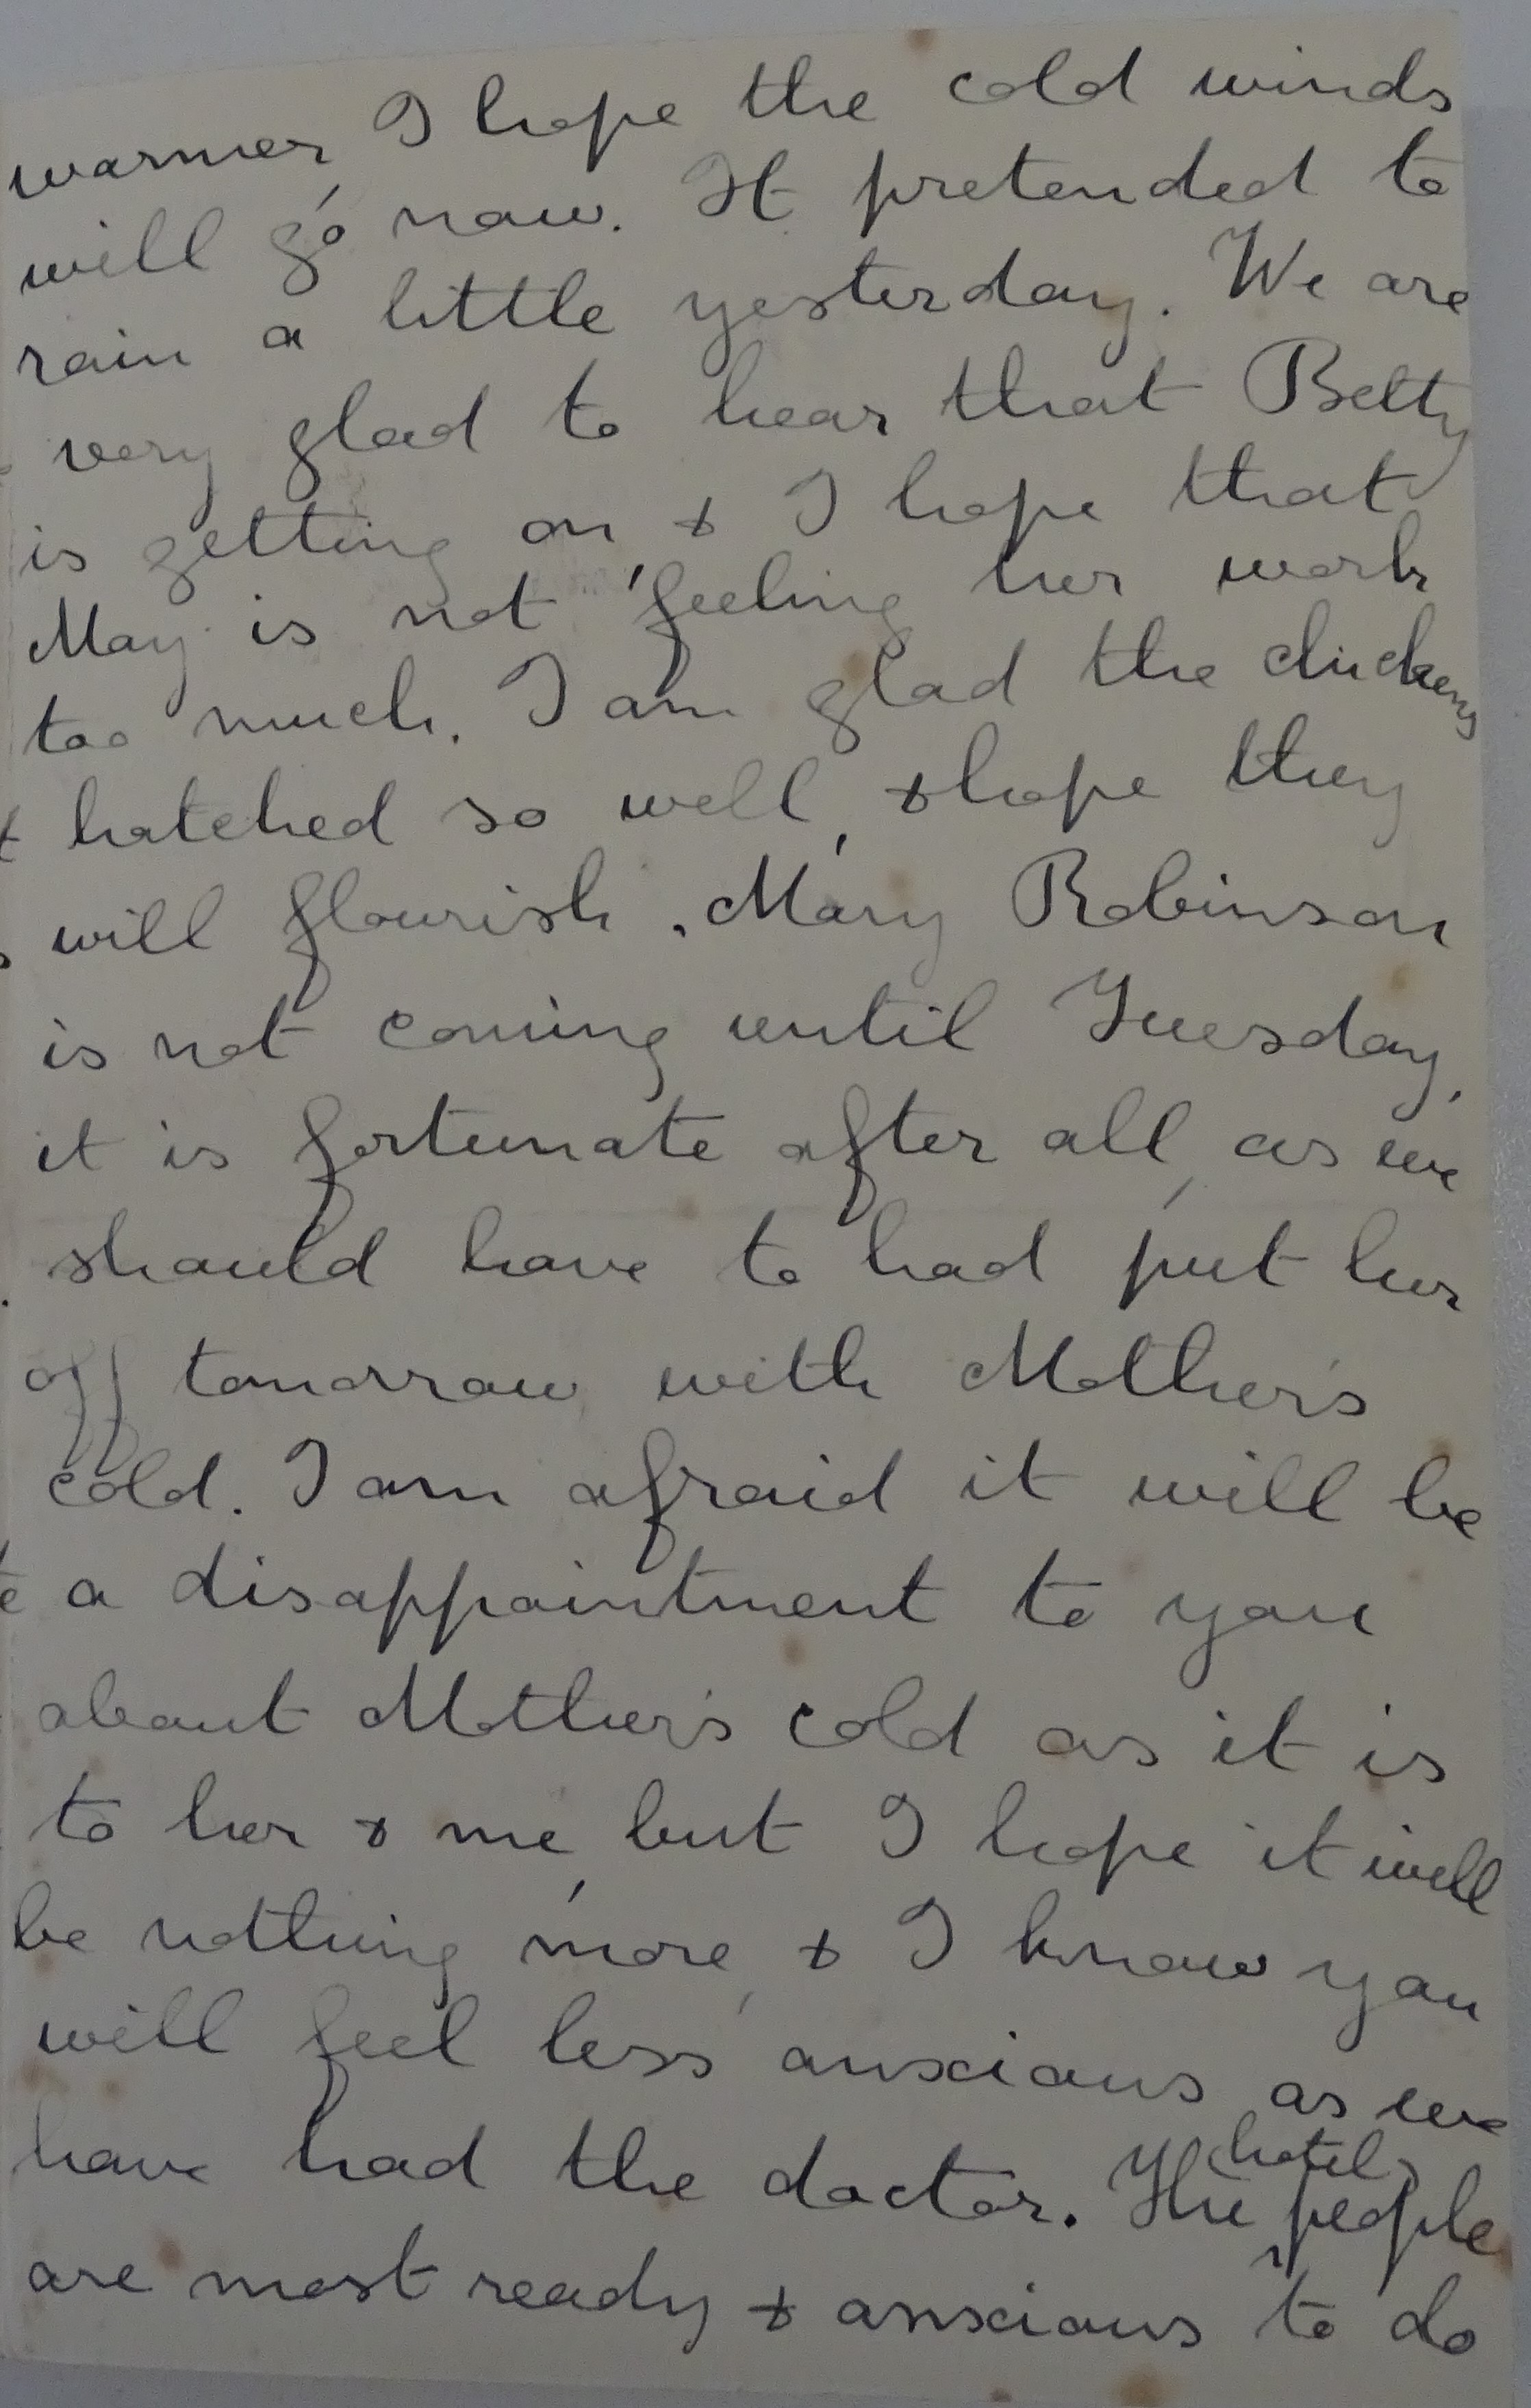 warmer, I hope the cold winds
will go now. It pretended to
rain a little yesterday. We are
very glad to hear that Betty
is getting on, & I hope that
May is not feeling her work
too much. I am glad the chickens
hatched so well, & hope they
will flourish. Mary Robinson
is not coming until Tuesday,
it is fortunate after all, as we
should have to had put her
off tomorrow with Mother's
cold. I am afraid it will be
a disappointment to you
about Mother's cold as it is
to her & me, but I hope it will
be nothing more, & I know you
will feel less anxious as we
have had the doctor. The hotel people
are most ready & anxious to do